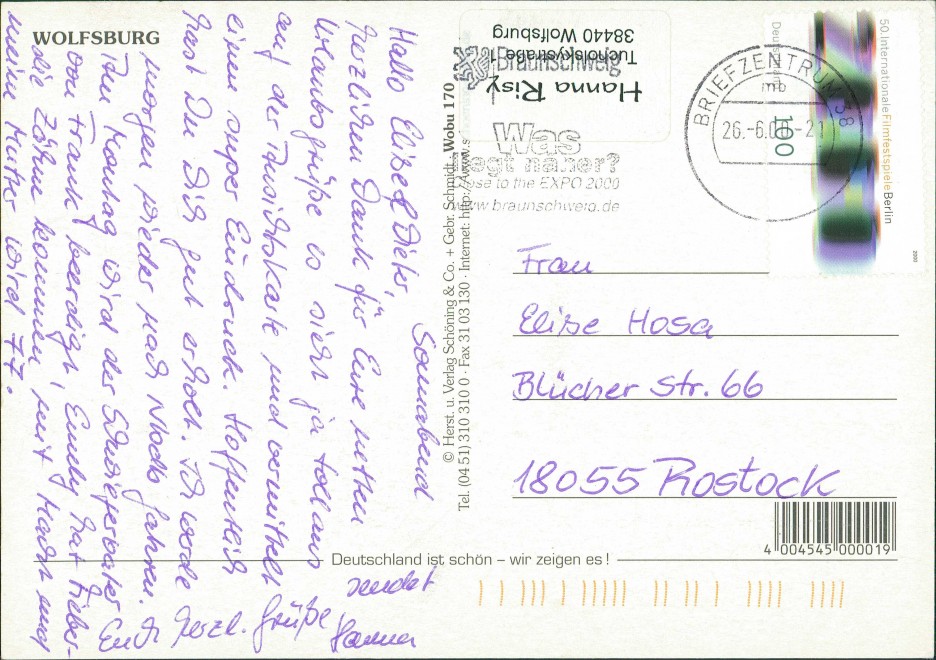 WOLFSBURG
Sonnabend
Hallo Eliße & Diets,
herzlichen Dank für Eure netten
Urlaubsgrüße es sieht ja toll aus
auf der Ansichtskarte und vermittelt
einen super Eindruck. Hoffentlich
hast Du Dich gut erholt. Ich werde
morgen wieder nach Nbch fahren.
Am Montag wird der Schwiegervater
von Frank beerdigt, hat Fieber-
die Zähne kommen, mit Mach und
meine Mutter wird 77.
Euch herzl. Grüße
sendet
Hanna
© Herst. u. Verlag Schöning & Co. + Gebr. Schmidt · Wobu 170
Tel. (04 51) 310 310 0 · Fax 31 03 130 · Internet: http://www.s
Hanna Risy
Tucholskystraße 1
38440 Wolfsburg
Braunschweig
Was
liegt näher?
close to the EXPO 2000
www.braunschweig.de
BRIEFZENTRUM 38
26.-6.0 -21
mb
Deutschland
100
50. Internationale Filmfestspiele Berlin
2000
Frau
Eliße Hosa
Blücher Str. 66
18055 Rostock
4 004545 000019
Deutschland ist schön – wir zeigen es !